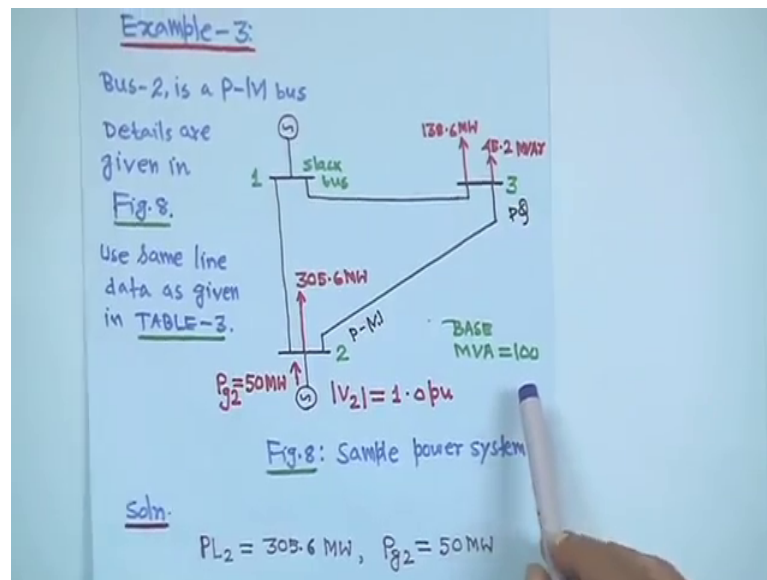 Example-3:
Bus-2, is a P-|V| bus
Details are
given in
Fig.8.
Use same line
data as given
in TABLE-3.
1
slack
bus
138.6MW
45.2 MVAr
3
PQ
305.6MW
P-|V|
2
Pg2=50MW
|V2|= 1.0pu
BASE
MVA=100
Fig.8: Sample power system
Soln.
PL2 = 305.6 MW, Pg2 = 50MW